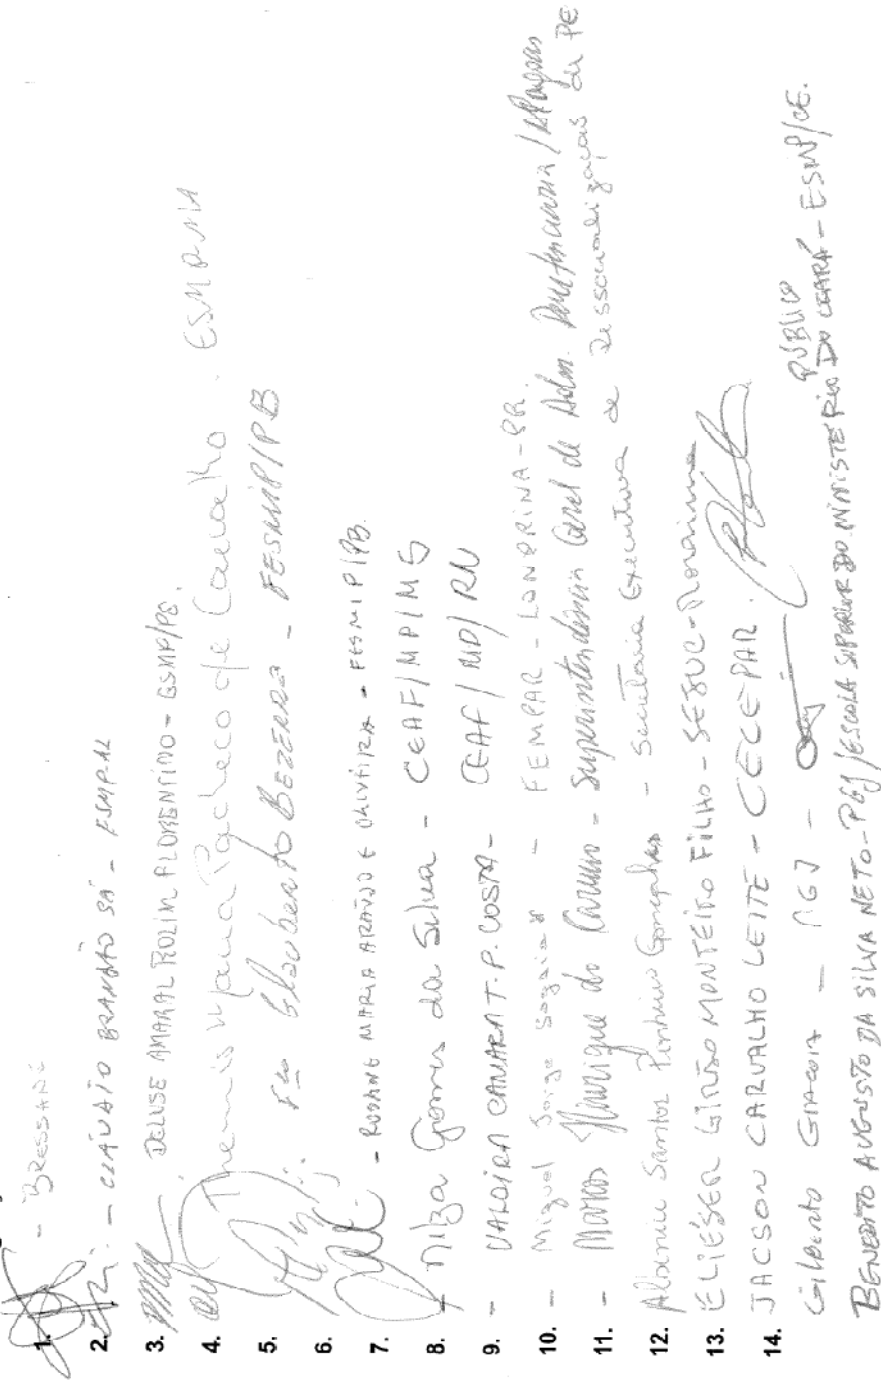 1. - BRESSANE
2. - CLÁUDIO BRANDÃO SÁ - ESMP-AL
3. DELUSE AMARAL ROLIM FLORENTINO - ESMP/PE.
4. Themis Maria Pacheco de Carvalho. ESMPMA
5. Fco Glauberto BEZERRA - FESMIP/PB
6.
7. - ROSANE MARIA ARAÚJO E OLIVEIRA - FESMIP/PB.
8. - Nilza Gomes da Silva - CEAF/MP/MG
9. - VALDIRA CAMARA T. P. COSTA - CEAF/MP/RN
10. - Miguel Jorge - FEMPAR - LONDRINA - PR.
11. - Marcos Henrique do Carmo - Superintendência Geral de Adm. Penitenciária / Alagoas
12. Albenice Santos Pinheiro Gonçalves - Secretaria Executiva de Ressocialização de PE
13. ELIÉSER GIRÃO MONTEIRO FILHO - SEJUC - Roraima
14. JACSON CARVALHO LEITE - CECEPAR.
Gilberto GIACOIA - PGJ -
BENEDITO AUGUSTO DA SILVA NETO - PGJ/ESCOLA SUPERIOR DO MINISTÉRIO PÚBLICO DO CEARÁ - ESMP/CE.